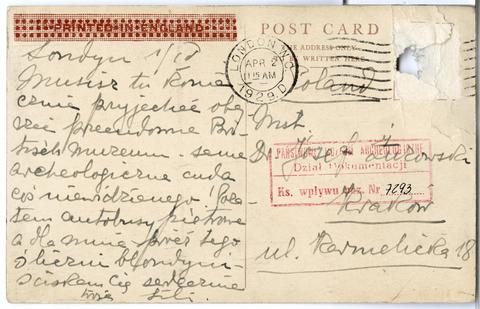 PRINTED IN ENGLAND
Londyn 1/IV
Musisz tu konie
cznie przyjechać obej
rzeć przecudowne Bri
tisch Muzeum. same
archeologiczne cuda
coś niewidzianego! Poza
tem autobusy piętrowe
a dla mnie prócz tego
śliczni blondyni-
ściskam Cię serdecznie
POST CARD
THE ADDRESS ONLY
WRITTEN HERE
LONDON W.C.
APR 2
11 15 AM
1929
Poland
Dr Józef Żurowski
PAŃSTWOWE MUZEUM ARCHEOLOGICZNE
Dział Dokumentacji
Ks. wpływu poz. Nr. 7293
Kraków
ul. Karmelicka 18